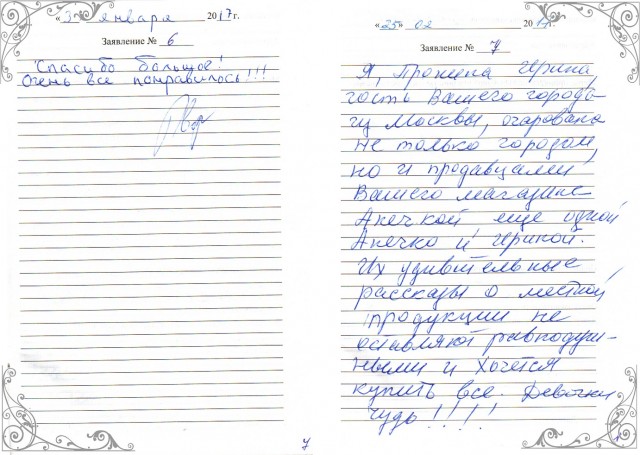 «3» января 2017г.
Заявление № 6
Спасибо большое!
Очень все понравилось!!!
7
«25» 02 2017г.
Заявление № 7
Я, Пронина Ирина,
гость Вашего города
Москвы, очарована
не только городом,
но и продавцами
Вашего магазина
Анечкой еще одной
Анечко и Ириной.
Их удивительные
рассказы о местной
продукции не
оставляют равнодуш-
ными и хочется
купить все. Девочки
чудо!!!!!